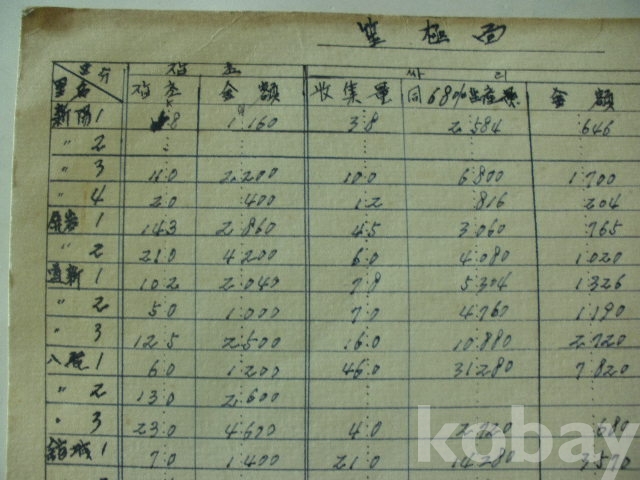 笠極面
区分 잡초 싸리
里名 잡초 金額 收集量 同68%生産量 金額
新陽1 58 1.160 38 2.584 646
〃2
〃3 110 2.200 100 6.800 1.700
〃4 20 400 12 816 204
1 143 2.860 45 3.060 765
〃2 210 4.200 60 4.080 1.020
道新1 102 2.040 78 5.304 1.326
〃2 50 1.000 70 4.760 1.190
〃3 125 2.500 160 10.880 2.720
1 60 1.200 460 31.280 7.820
〃2 130 2.600
〃3 230 4.600 40 2.720 680
1 70 1.400 210 14.280 3.570
kobay